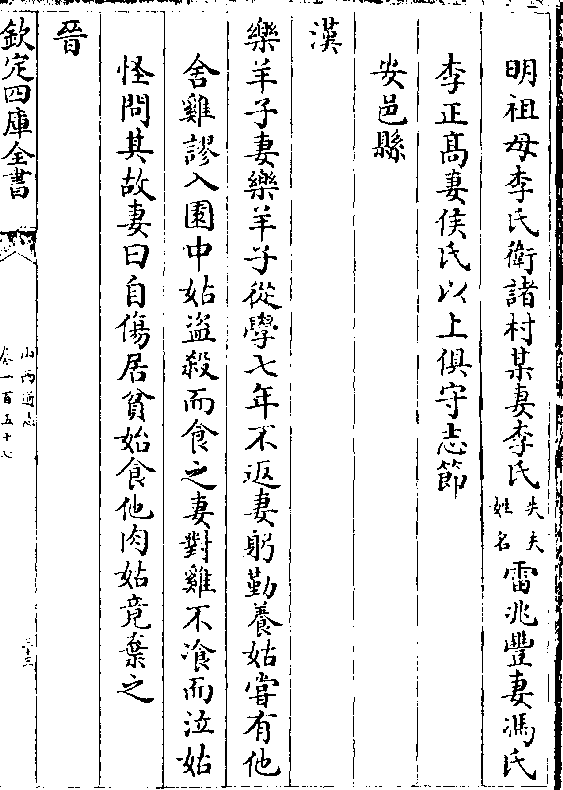 明祖母李氏衛諸村某妻李氏失夫姓名雷兆豐妻馮氏
李正髙妻侯氏以上俱守志節
安邑縣
漢
樂羊子妻樂羊子從學七年不返妻躬勤養姑嘗有他
舍雞謬入園中姑盜殺而食之妻對雞不飡而泣姑
怪問其故妻曰自傷居貧始食他肉姑竟棄之
晉
欽定四庫全書
山西通志
卷一百五十七
三十三